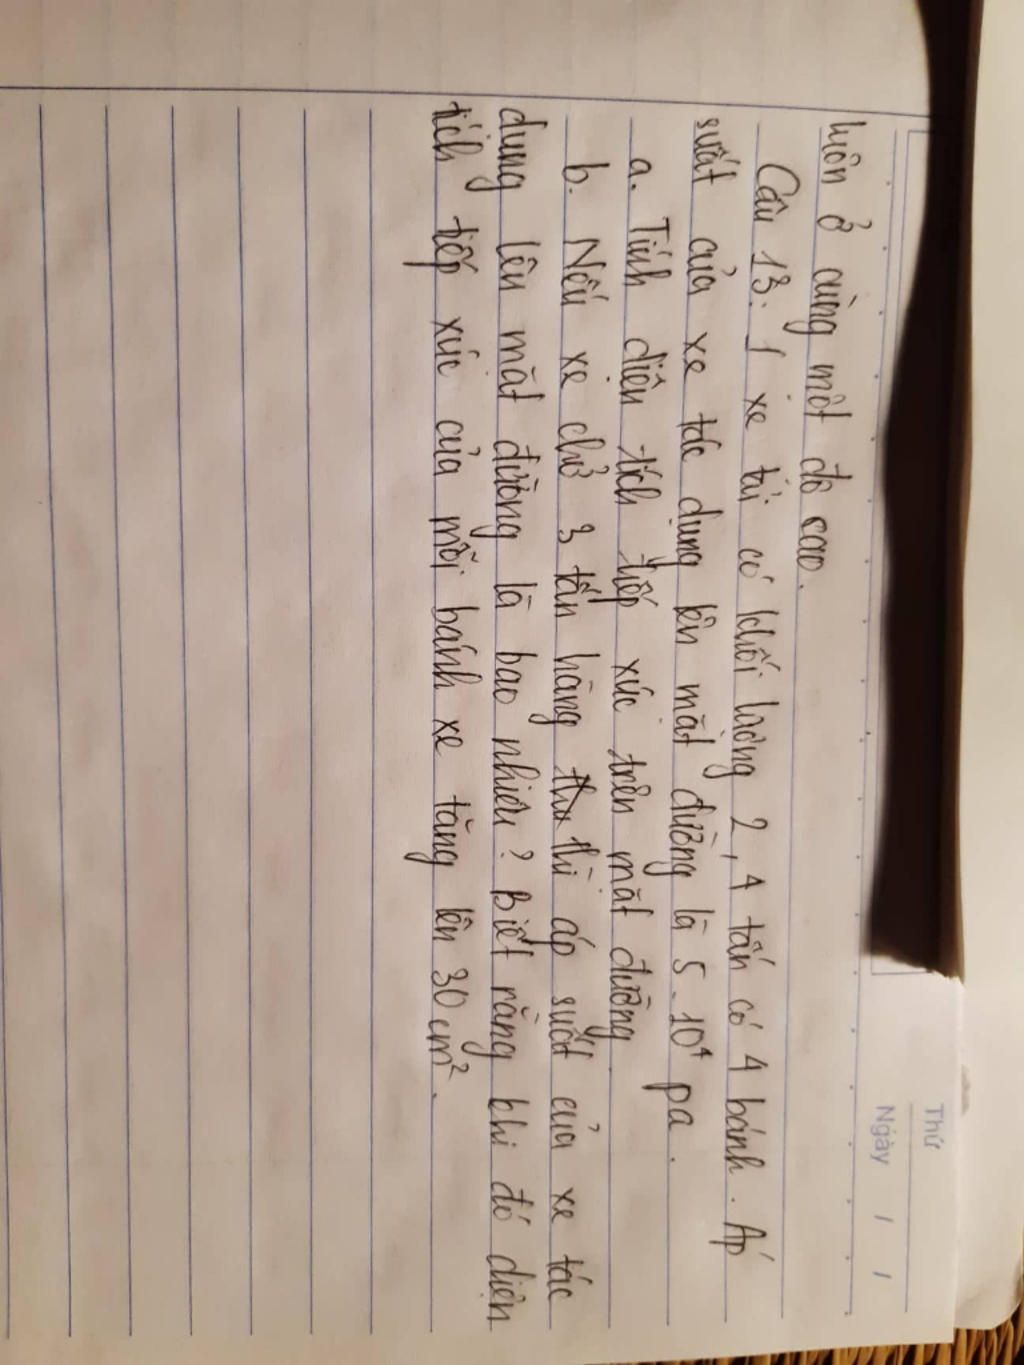 Thứ
Ngày / /
luôn ở cùng một độ cao.
Câu 13: 1 xe tải có khối lượng 2,4 tấn có 4 bánh. Áp
suất của xe tác dụng lên mặt đường là 5.10⁴ pa.
a. Tính diện tích tiếp xúc trên mặt đường
b. Nếu xe chở 3 tấn hàng thì áp suất của xe tác
dụng lên mặt đường là bao nhiêu? Biết rằng khi đó diện
tích tiếp xúc của mỗi bánh xe tăng lên 30 cm².